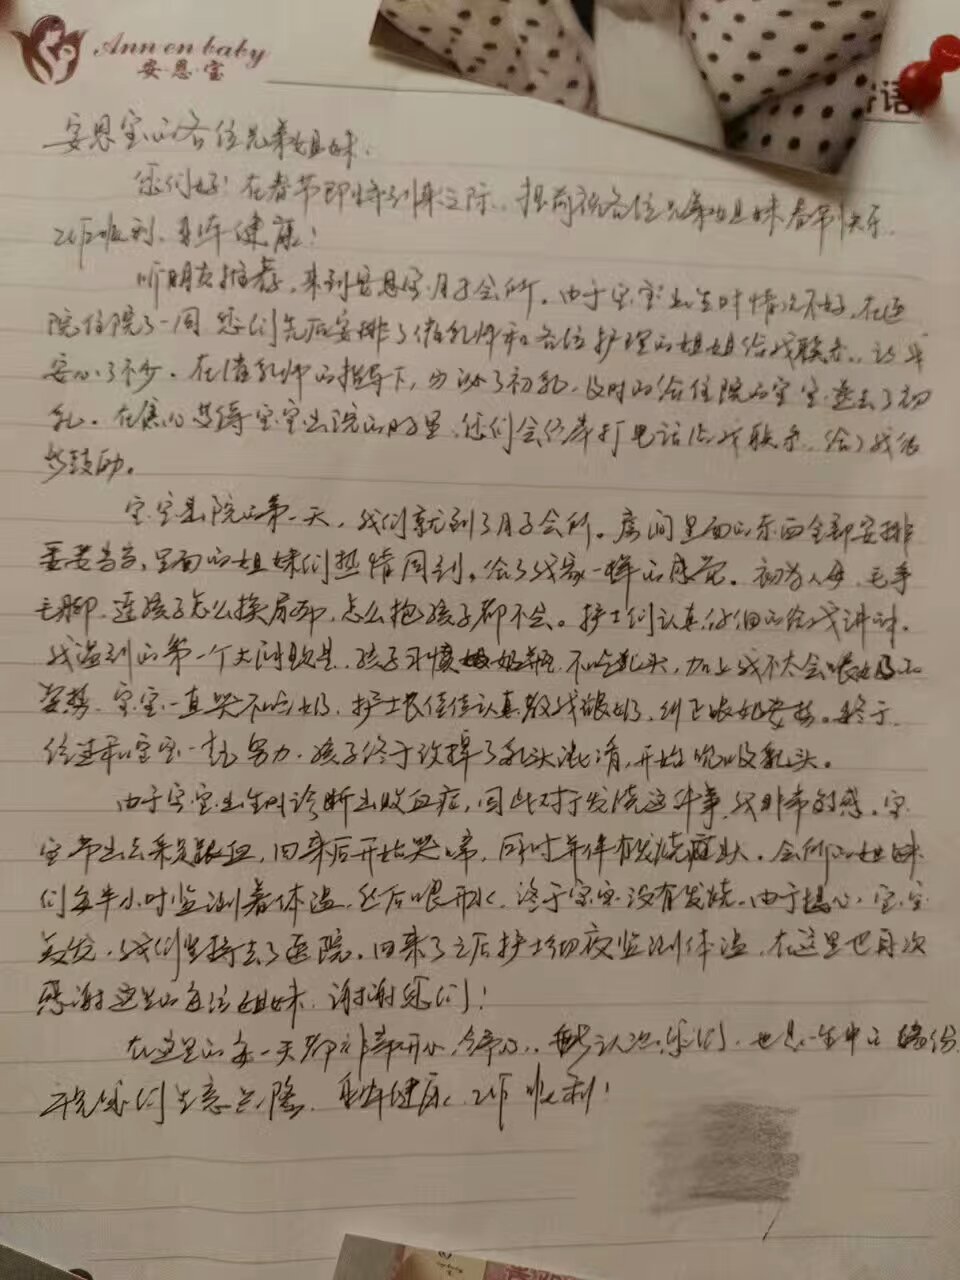 Ann en baby
安·恩·宝
语
安恩宝的各位兄弟姐妹.
您们好!在春节即将到来之际.提前祝各位兄弟姐妹春节快乐.
工作顺利.身体健康!
听朋友推荐,来到安恩宝月子会所.由于宝宝出生时情况不好,在医
院住院了一周 您们先后安排了催乳师和各位护理的姐姐给我联系.让我
安心了不少.在催乳师的指导下,分泌了初乳,及时的给住院的宝宝送去了初
乳.在焦心等待宝宝出院的日子里,您们会经常打电话给我联系.给了我很
多鼓励。
宝宝出院的第一天,我们就到了月子会所。房间里面的东西全部安排
妥妥当当,里面的姐妹们热情周到,给了我家一样的感觉。初为人母,毛手
毛脚,连孩子怎么换尿布,怎么抱孩子都不会。护士们认真仔细的给我讲解.
我遇到的第一个大问题是,孩子习惯奶瓶,不吃乳头,加上我不太会喂奶的
姿势,宝宝一直哭不吃奶.护士长位位认真教我喂奶,纠正喂奶姿势。终于,
经过和宝宝一起努力,孩子终于改掉了乳头混淆,开始吮吸乳头。
由于宝宝出生时诊断出败血症,因此对于发烧这件事,我非常敏感.宝
宝带出去采足跟血,回来后开始哭啼,同时并伴有发烧症状。会所的姐妹
们每半小时监测着体温.然后喂开水.终于宝宝没有发烧。由于担心,宝宝
复发,我们坚持去了医院。回来了之后护士彻夜监测体温.在这里也再次
感谢这里的每位姐妹.谢谢您们!
在这里的每一天都非常开心,认识您们,也是一生中的缘份,
祝您们生意兴隆.身体健康.工作顺利!